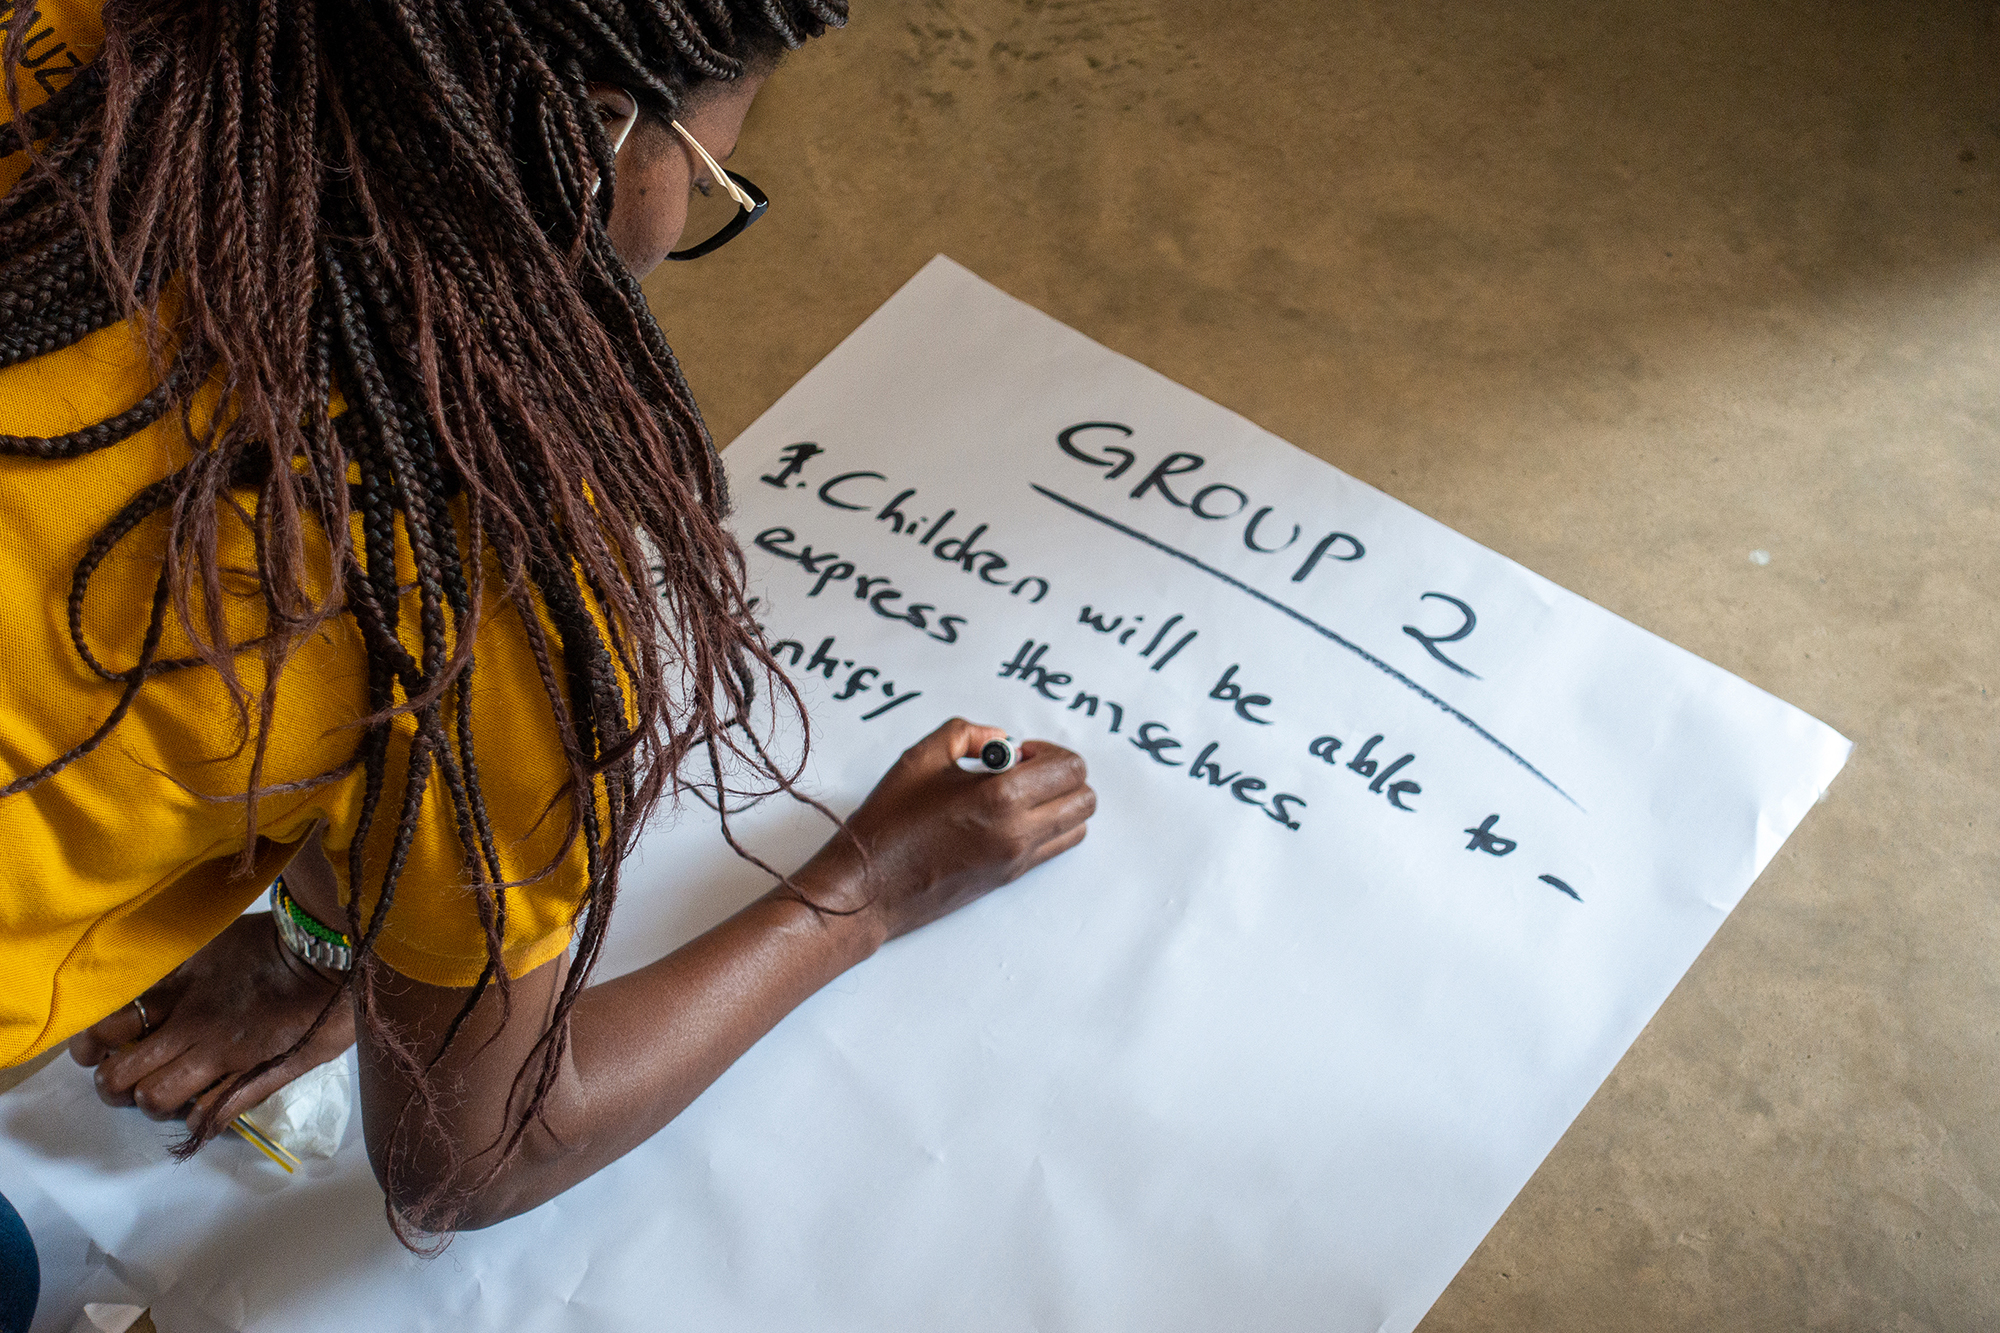 GROUP 2
1. Children will be able to -
express themselves.
ntify